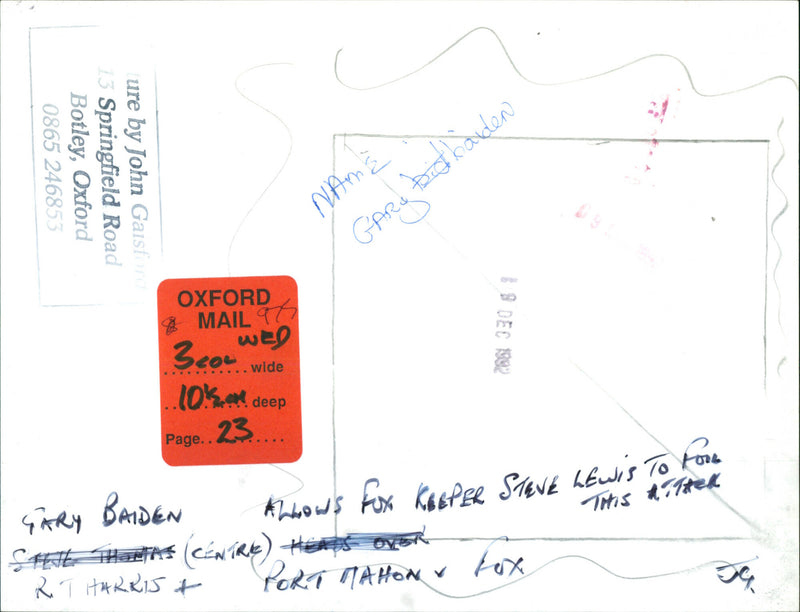 ture by John Gaisford
13 Springfield Road
Botley, Oxford
0865 246855
NAME
GARY Baiden
19 DEC 1992
OXFORD
MAIL
WED
3 COL wide
10½ cm deep
Page 23
GARY BAIDEN ALLOWS FOX KEEPER STEVE LEWIS TO FOIL
THIS
STEVE THOMAS (CENTRE) HEADS OVER
R.T HARRIS + PORT MAHON v FOX
JG.